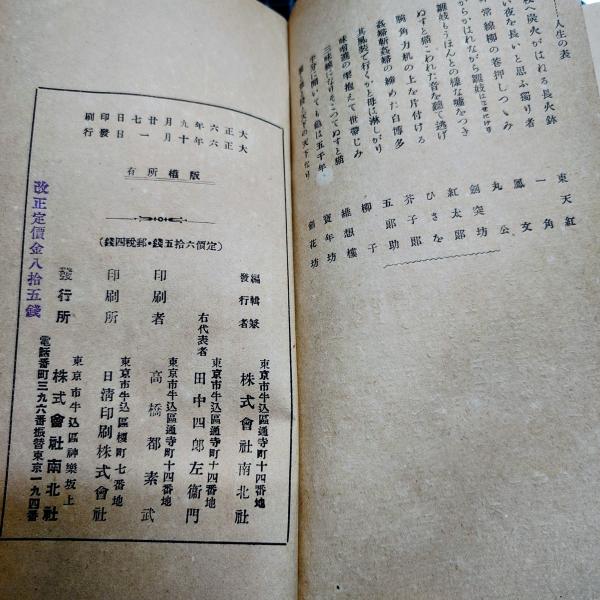 ――人生の表
へ炭火がはねる長火鉢
い夜を長いと思ふ獨り者
常線柳の巻押しつゝみ
からかはれながら雛妓はさせに行き
雛妓もうほんとの樣な噓をつき
ぬすと猫こわれた音を聽て逃げ
腕角力机の上を片付ける
姦婦斬姦婦の締めた白博多
其風裝で行くかと母は淋しがり
味噌漉の雫抱えて世帶じみ
三味線になりそこつてぬすと猫
半分に開いても扇は五千年
東天紅
一角
鳳文
丸公
劍突坊
紅太郎
ひさを
芥子郎
五郎助
柳子
維想樓
寶年坊
劍花坊
大正六年九月廿七日印刷
大正六年十月一日發行
版權所有
(定價六拾五錢・郵稅四錢)
編輯兼
發行者
東京市牛込區通寺町十四番地
株式會社南北社
右代表者
東京市牛込區通寺町十四番地
田中四郎左衞門
印刷者
東京市牛込區通寺町十四番地
高橋都素武
印刷所
東京市牛込區榎町七番地
日淸印刷株式會社
發行所
東京市牛込區神樂坂上
株式會社南北社
電話番町三九六番振替東京一九四番
改正定價金八拾五錢